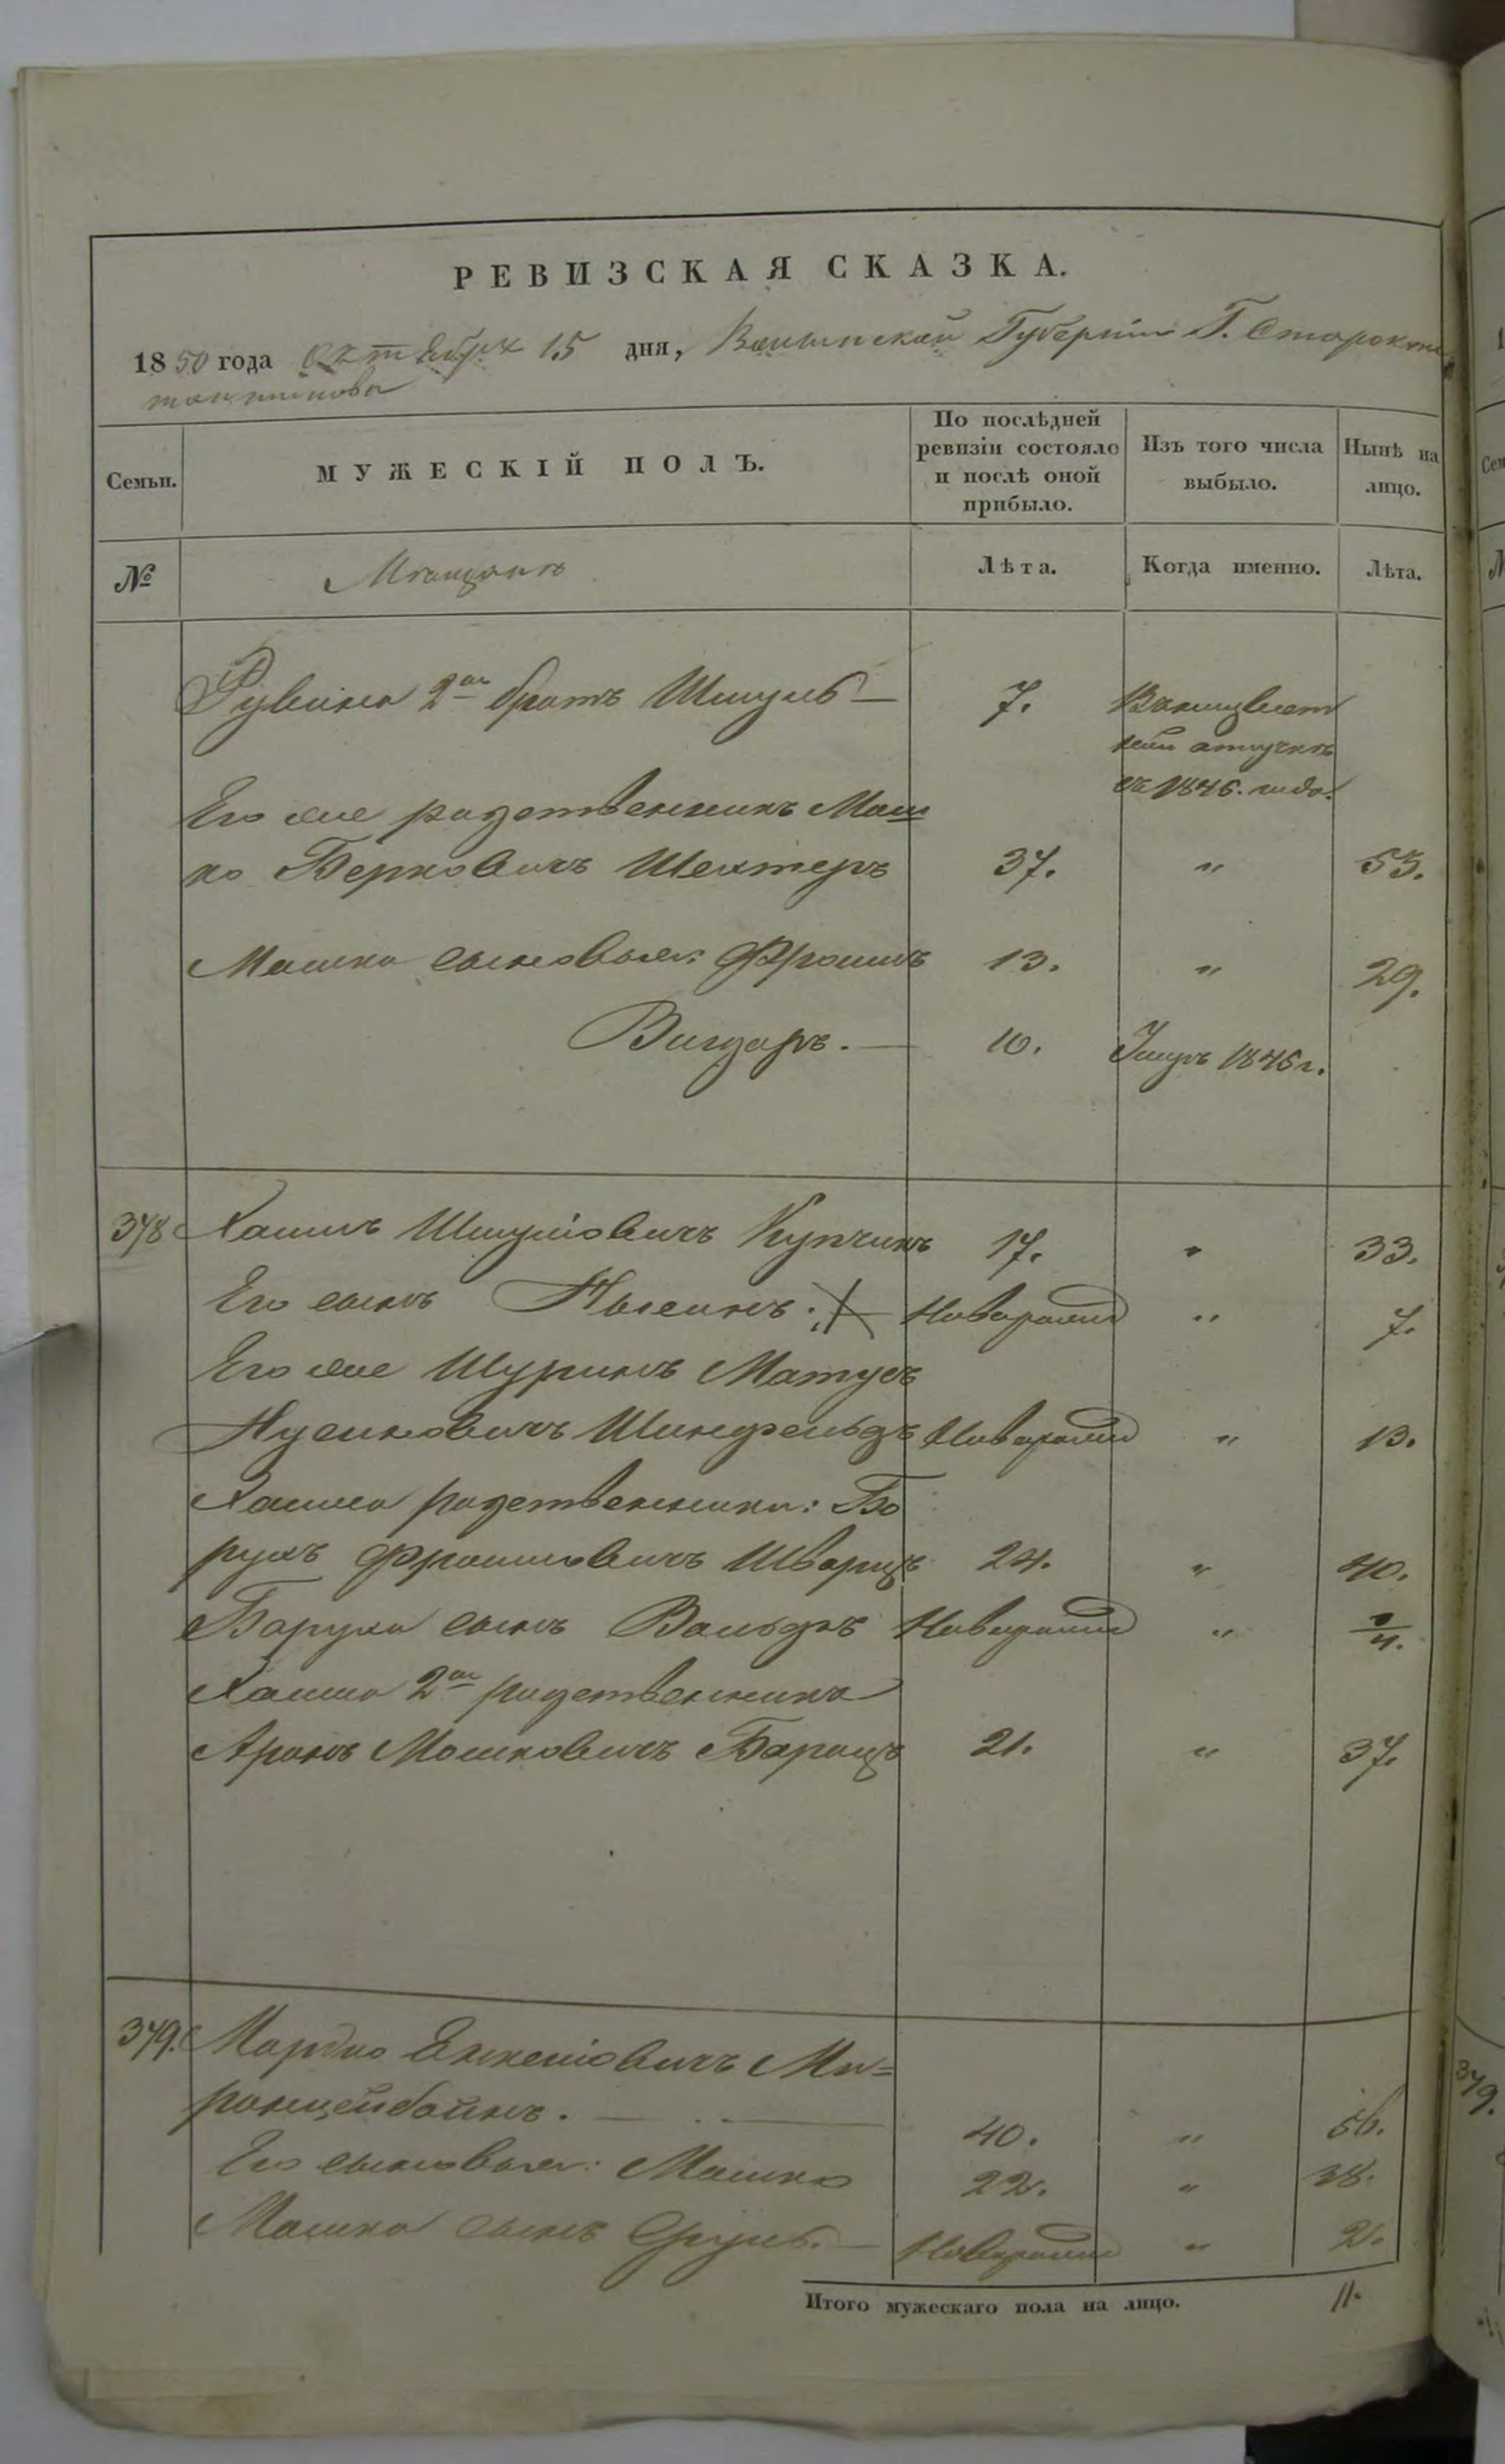 РЕВИЗСКАЯ СКАЗКА.
1850 года Октября 15 дня, Волынской Губернии Г. Староконс
тантинова
Семьи.
МУЖЕСКІЙ ПОЛЪ.
По послѣдней
ревизіи состояло
и послѣ оной
прибыло.
Изъ того числа
выбыло.
Нынѣ на
лицо.
№
Мѣщане
Лѣта.
Когда именно.
Лѣта.
Рувина 2й братъ Шмуль — 7.
отлучкѣ
съ 1846. года.
Его же родственникъ Мош
ко Берковичъ Шехтеръ 37. " 53.
Мошка сыновья: Фроимъ 13. " 29.
Вигдоръ. — 10. Умеръ 1846 г.
378 Хаимъ Шмулiовичъ Купчикъ 17. " 33.
Его сынъ Нысинъ. Новорожд " 7.
Его же Шуринъ Матусъ
Нусиновичъ Шинфельдъ Новорожд " 13.
Хаима родственники: Бо
рухъ Фроимовичъ Шварцъ 24. " 40.
Боруха сынъ Вольфъ Новорожд "
Хаима 2й родственникъ
Аронъ Мошковичъ Барацъ 21. " 37.
379. Мордко Ехкелiовичъ Ми=
ронцейбойнъ. — 40. " 56.
Его сыновья: Мошко 22. " 38.
Мошка сынъ Сруль. — Новорожд " 2.
Итого мужескаго пола на лицо. 11.
379.